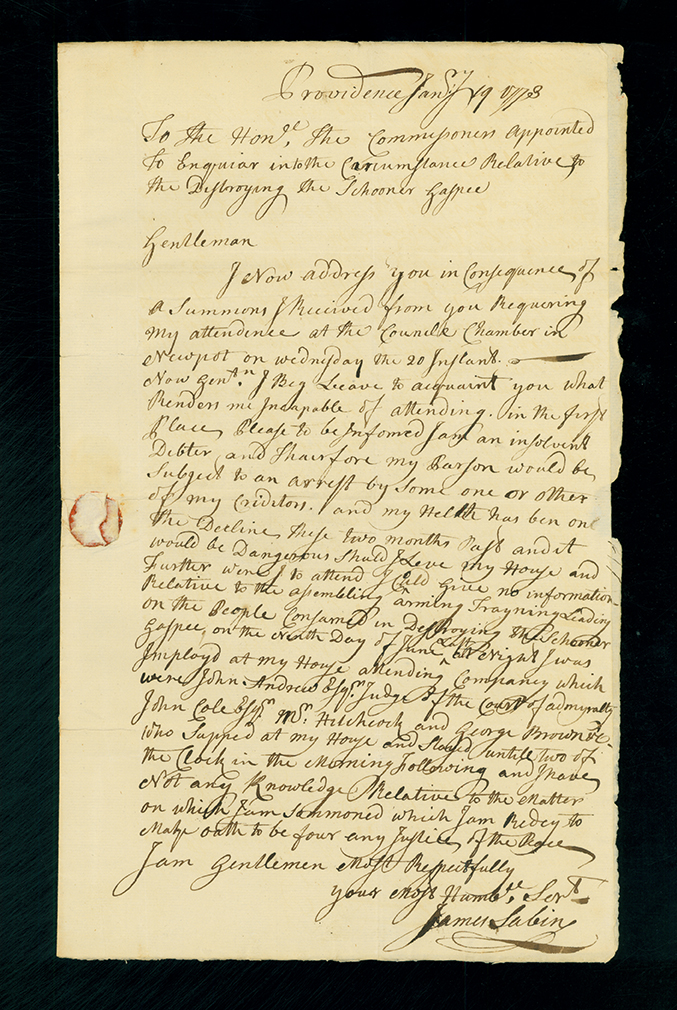 Providence Janry 19 1773
To the Honle. the Commissoners Appointed
to Enquiar into the Carcumstance Relative to
the Destroying the Schooner Gaspee
Gentleman
I Now address you in Consequence of
a Summons I Received from you Requering
my attendence at the Councle Chamber in
Newpot on wednsday the 20 Instant.
Now Gentn. I Beg Leave to acquaint you what
Renders me Incapable of attending. in the first
Place, Please to be Infomed I am an insolvent
Debter, and Thairfore my Parson would be
Subject to an arrest by Some one or other
of my Criditors. and my Helth has ben one
the Decline, these two months Past and it
would be Dangerous Shuld I Leve my House and
Further were I to attend I Culd Give no information
Relative to the assembling arming Trayning Leading
on the People Consarned in Destroying the Schooner
Gaspee, on the Ninth Day of June Last at Night I was
Imployd at my House attending Compancy which
were John Andrew Esqr. Judge of the Court of admyralty
John Cole Esqr. Mr. Hitchcock and George Brown
who Supped at my House and Stayed untill two of
the Clock in the Morning following and I have
Not any Knowledge Relative to the Matter
on which I am Sommoned which I am Redey to
Make oath to be four any Justice of the Peace
I am Gentlemen Most Respectfully
your Most Humble Servt
James Sabin